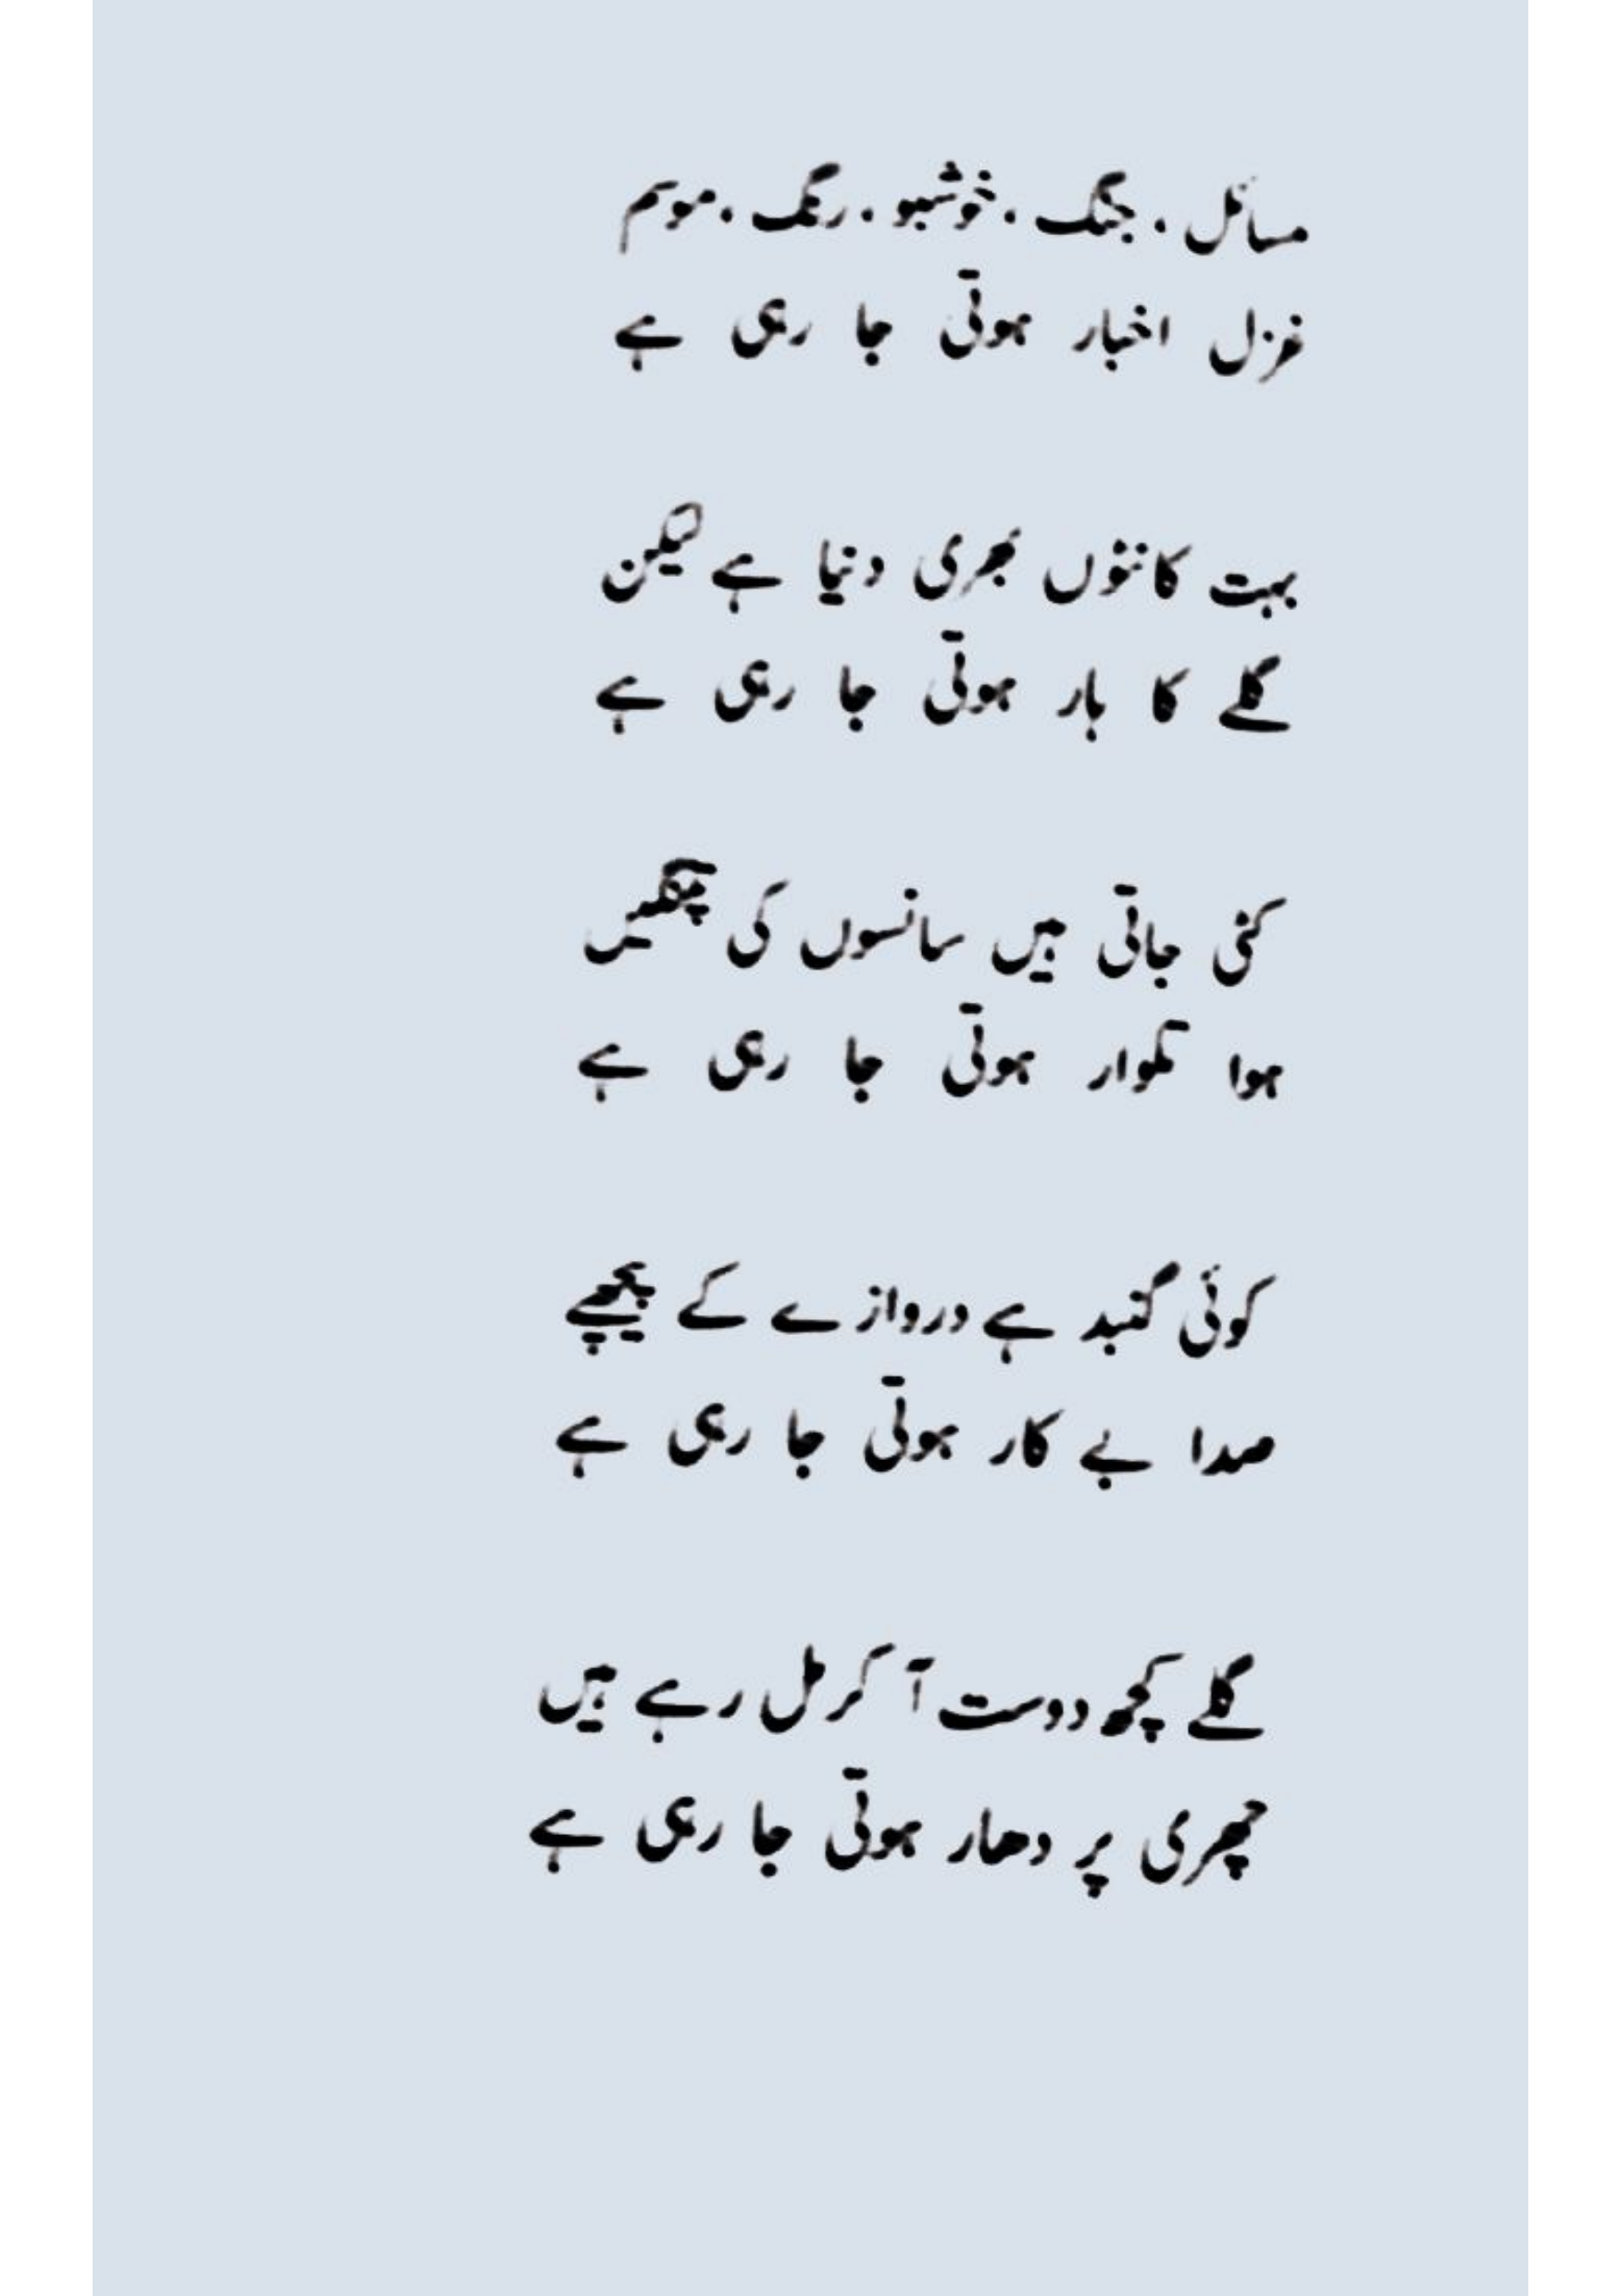 مسائل ، جنگ ، خوشبو ، رنگ ، موسم
غزل اخبار ہوتی جا رہی ہے
بہت کانٹوں بھری دنیا ہے لیکن
گلے کا ہار ہوتی جا رہی ہے
کٹی جاتی ہیں سانسوں کی پتنگیں
ہوا تلوار ہوتی جا رہی ہے
کوئی گنبد ہے دروازے کے پیچھے
صدا بے کار ہوتی جا رہی ہے
گلے کچھ دوست آ کر مل رہے ہیں
چھری پر دھار ہوتی جا رہی ہے